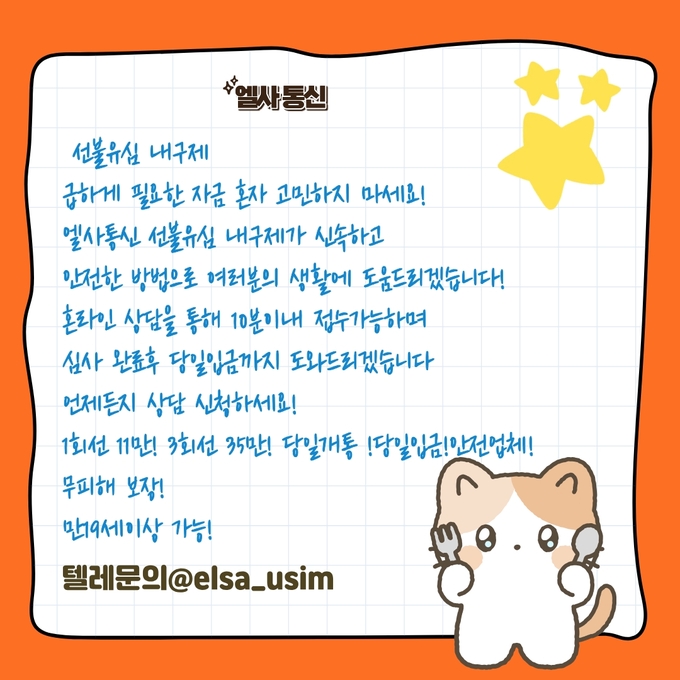 엘사통신
선불유심 내구제
급하게 필요한 자금 혼자 고민하지 마세요!
엘사통신 선불유심 내구제가 신속하고
안전한 방법으로 여러분의 생활에 도움드리겠습니다!
혼라인 상담을 통해 10분이내 접수가능하며
심사 완료후 당일입금까지 도와드리겠습니다
언제든지 상담 신청하세요!
1회선 11만! 3회선 35만! 당일개통 !당일입금!안전업체!
무피해 보장!
만19세이상 가능!
텔레문의@elsa_usim